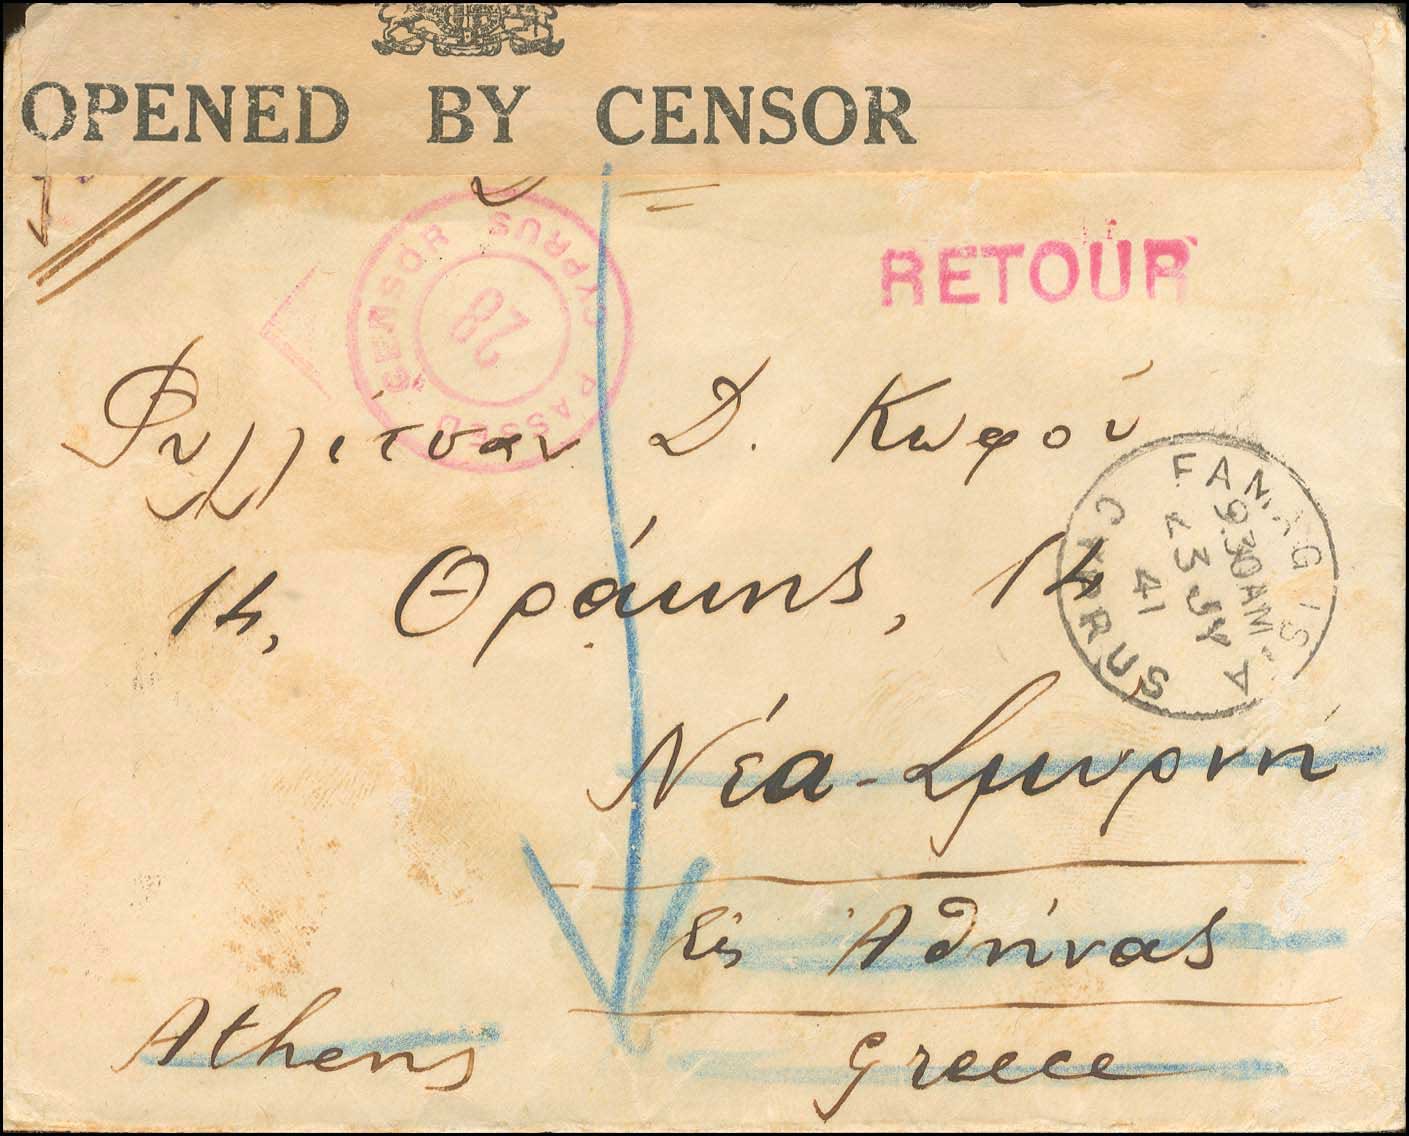 OPENED BY CENSOR
RETOUR
PASSED CENSOR CYPRUS
28
Δ. Κωφού
14, Θράκης, 14
FAMAGUSTA
9.30 AM
23 JY
41
CYPRUS
Νέα-Σμύρνη
Εἰς Ἀθήνας
Athens Greece